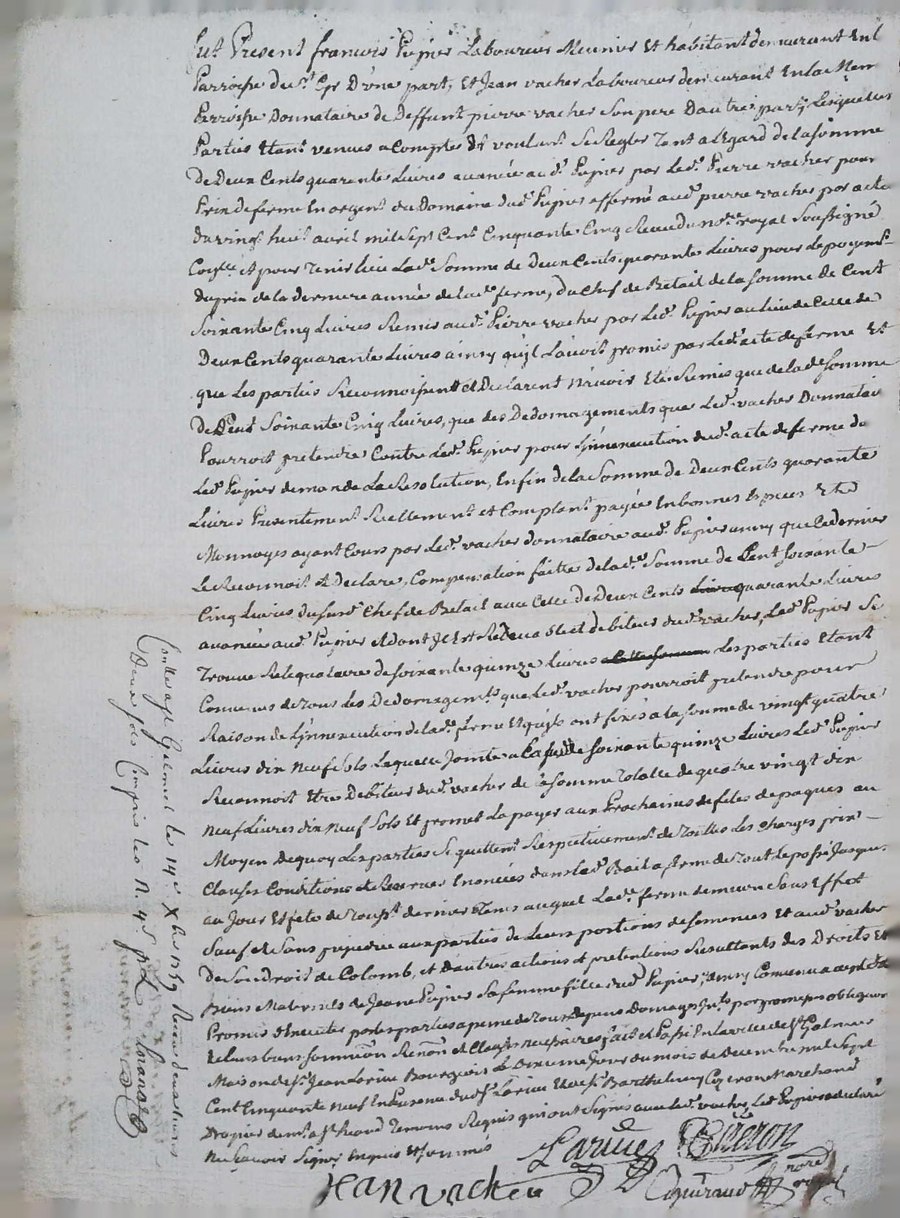 fut Present francois Pupier Laboureur Meunier Et habitant demeurant En l
Parroisse de Cyr D'une part, Et Jean vacher Laboureur demeurant En la Mem
Parroisse Donnataire de Deffunt pierre vacher Son pere Dautre part, Lesquelles
Parties Etant venues a Compte Et voulant Se Regler Tant a l'Egard de la Somme
De Deux Cents quarante Livres avancée aud. Pupier par Led. Pierre vacher pour
Prix de ferme En argent du Domaine dud. Pupier affermé aud. pierre vacher par acte
Du vingt huit avril mil Sept Cent Cinquante Cinq Receu du no.re royal Soussigné
Et pour Tenir lieu Lad. Somme de Deux Cents quarante Livres pour le payemt.
du prix de la derniere année de lad. ferme, Du Chef de Betail de la Somme De Cent
Soixante Cinq Livres Remis aud. Pierre vacher par Led. Pupier au Lieu de Celle de
Deux Cents quarante Livres ainsy qu'il L'avoit promis par Led. acte de ferme Et
que Les parties Reconnoissent et Declarent n'avoir Eté Remis que de lad. Somme
De Cent Soixante Cinq Livres, que des Dedomagements que Led. vacher Donnatair
Pourroit pretendre Contre Led. Pupier pour L'innexecution dud. acte de ferme do
Led. Pupier demande La Resolution, Enfin de la Somme De Deux Cents quarante
Livres Presentement Reellement et Comptant payée En bonnes Especes Et
Monnoyes ayant Cours par Led. vacher donnataire aud. Pupier ainsy que Ce dernier
Le Reconnoit Et Declare, Compensation faitte de lad. Somme de Cent Soixante
Cinq Livres du Chef de Betail avec Celle de Deux Cents quarante Livres
avancée aud. Pupier Et dont Il Est Debiteur dud. vacher, Led. Pupier Se
Trouve Reliquataire de Soixante quinze Livres Les parties Etant
Convenus de Tous Les Dedomagemts. que Led. vacher pourroit pretendre pour
Raison de L'innexecution de lad. ferme Et qu'ils ont fixés a la Somme de vingt quatre
Livres dix Neuf Sols Laquelle Jointe a Soixante quinze Livres Led. Pupier
Reconnoit Etre Debiteur dud. vacher de la Somme Totalle de quatre vingt dix
Neuf Livres dix Neuf Sols Et promet La payer aux Prochaines fetes de paques au
Moyen De quoy Les parties Se quittent Respectivement de Toutes Les Charges prix
Clauses Conditions et Reserves Enoncées dans Led. Bail a ferme de Tout Le passé Jusques
au Jour Et fete de Toust. dernier Tems auquel Lad. ferme demeure Sans Effet
Sauf et Sans prejudice aux parties de Leurs portions de Semences Et aud. vacher
De Son droit de Colomb, et D'autres actions et pretentions Resultants des Droits Et
Biens Maternels de Jeane Pupier Sa femme fille dud. Pupier, ainsy Convenu accepté Et
Promis D'Executer par les parties a peine de Tous Depens Domages Int. par promesses obligaon
de Leurs biens Soumission Renon. et Clauses necessaires, fait et Passé En la ville de St. Galmier
Maison de Sr. Jean Larive Bourgeois Le quatorzieme Jour du mois de Decembre mil Sept
Cent Cinquante Neuf En Presence dud. Sr. Larive Et de Sr. Barthelemy Marchand
Drapier de Temoins Requis qui ont Signé avec Led. vacher, Led. Pupier a declaré
Ne Sçavoir Signer Enquis Et Sommés
Larive
Jean vacher
no.re royal
Controlé a St Galmier le 14e Xbre 1759 Receu
Deux Sols Compris les N. 4s. pr L.